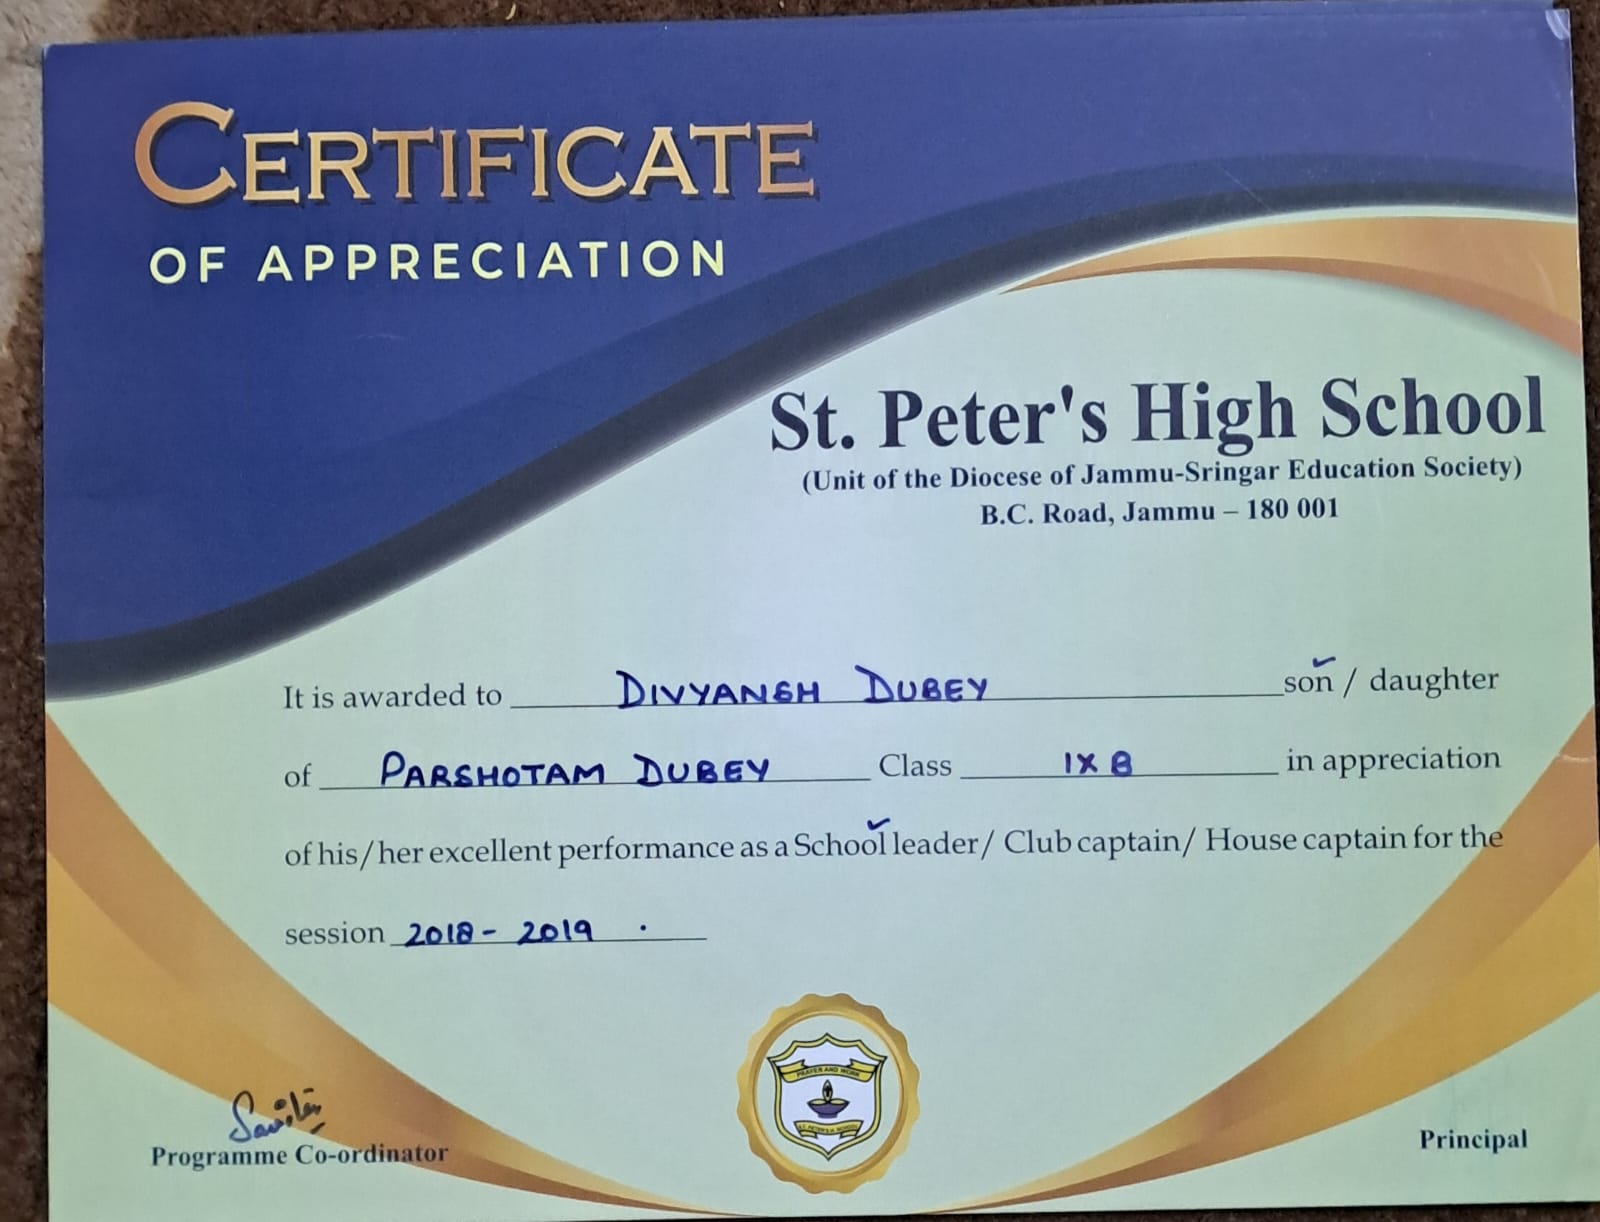 CERTIFICATE
OF APPRECIATION
St. Peter's High School
(Unit of the Diocese of Jammu-Sringar Education Society)
B.C. Road, Jammu – 180 001
It is awarded to DIVYANSH DUBEY son / daughter
of PARSHOTAM DUBEY Class IX B in appreciation
of his/her excellent performance as a School leader/ Club captain/ House captain for the
session 2018 - 2019 .
PRAYER AND WORK
ST. PETER'S H. SCHOOL
Savita
Programme Co-ordinator
Principal